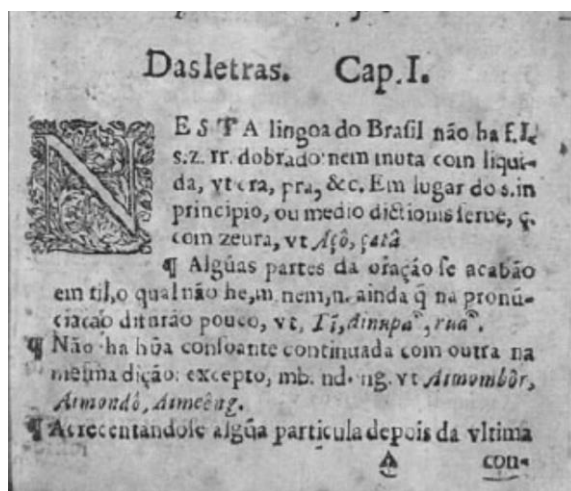 Das letras. Cap. I.
NESTA lingoa do Brasil não ha f. l.
s. z. rr. dobrado nem muta com liqui-
da, vt cra, pra, &c. Em lugar do s. in
principio, ou medio dictionis serue, ç.
com zeura, vt Açô, çatâ
¶ Algũas partes da oração se acabão
em til, o qual não he, m. nem, n. ainda q̃ na pronũ-
ciação diffirão pouco, vt, Tĩ,
¶ Não ha hũa consoante continuada com outra na
mesma dição: excepto, mb. nd. ng. vt Aimombôr,
Aimondô, Aimeẽng.
¶ Acrecentandose algũa particula depois da vltima
A con-